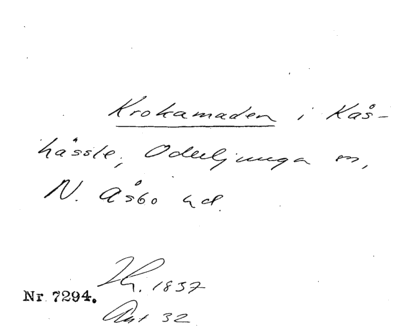 Krokamaden i Kås-
hässle, Oderljunga sn,
N. Åsbo hd.
Nr 7294.
1837
Art 32